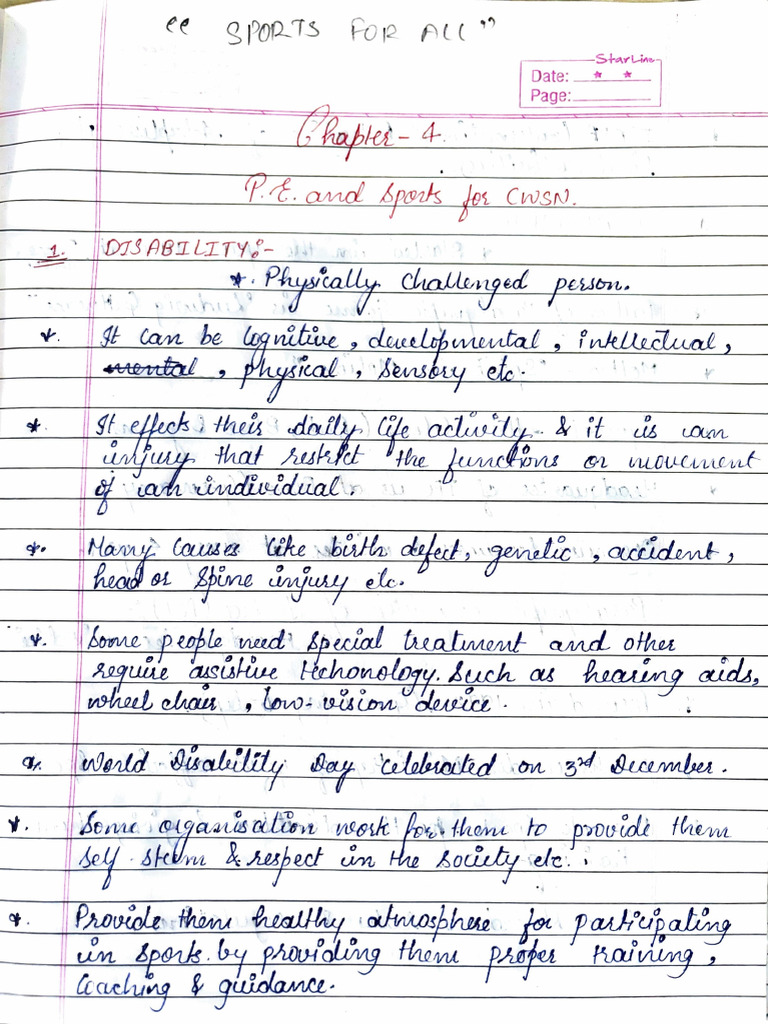 “ SPORTS FOR ALL ”
StarLine
Date: * *
Page:
Chapter - 4
P.E. and Sports for CWSN.
1. DISABILITY:-
*. Physically challenged person.
*. It can be cognitive, developmental, intellectual,
mental, physical, sensory etc.
*. It effects their daily life activity & it is an
injury that restrict the functions or movement
of an individual.
*. Many causes like birth defect, genetic, accident,
head or spine injury etc.
*. Some people need special treatment and other
require assistive techonology. Such as hearing aids,
wheel chair, low-vision device.
*. World Disability Day celebrated on 3rd December.
*. Some organisation work for them to provide them
self steem & respect in the society etc.
*. Provide them healthy atmosphere for participating
in sports by providing them proper training,
Coaching & guidance.